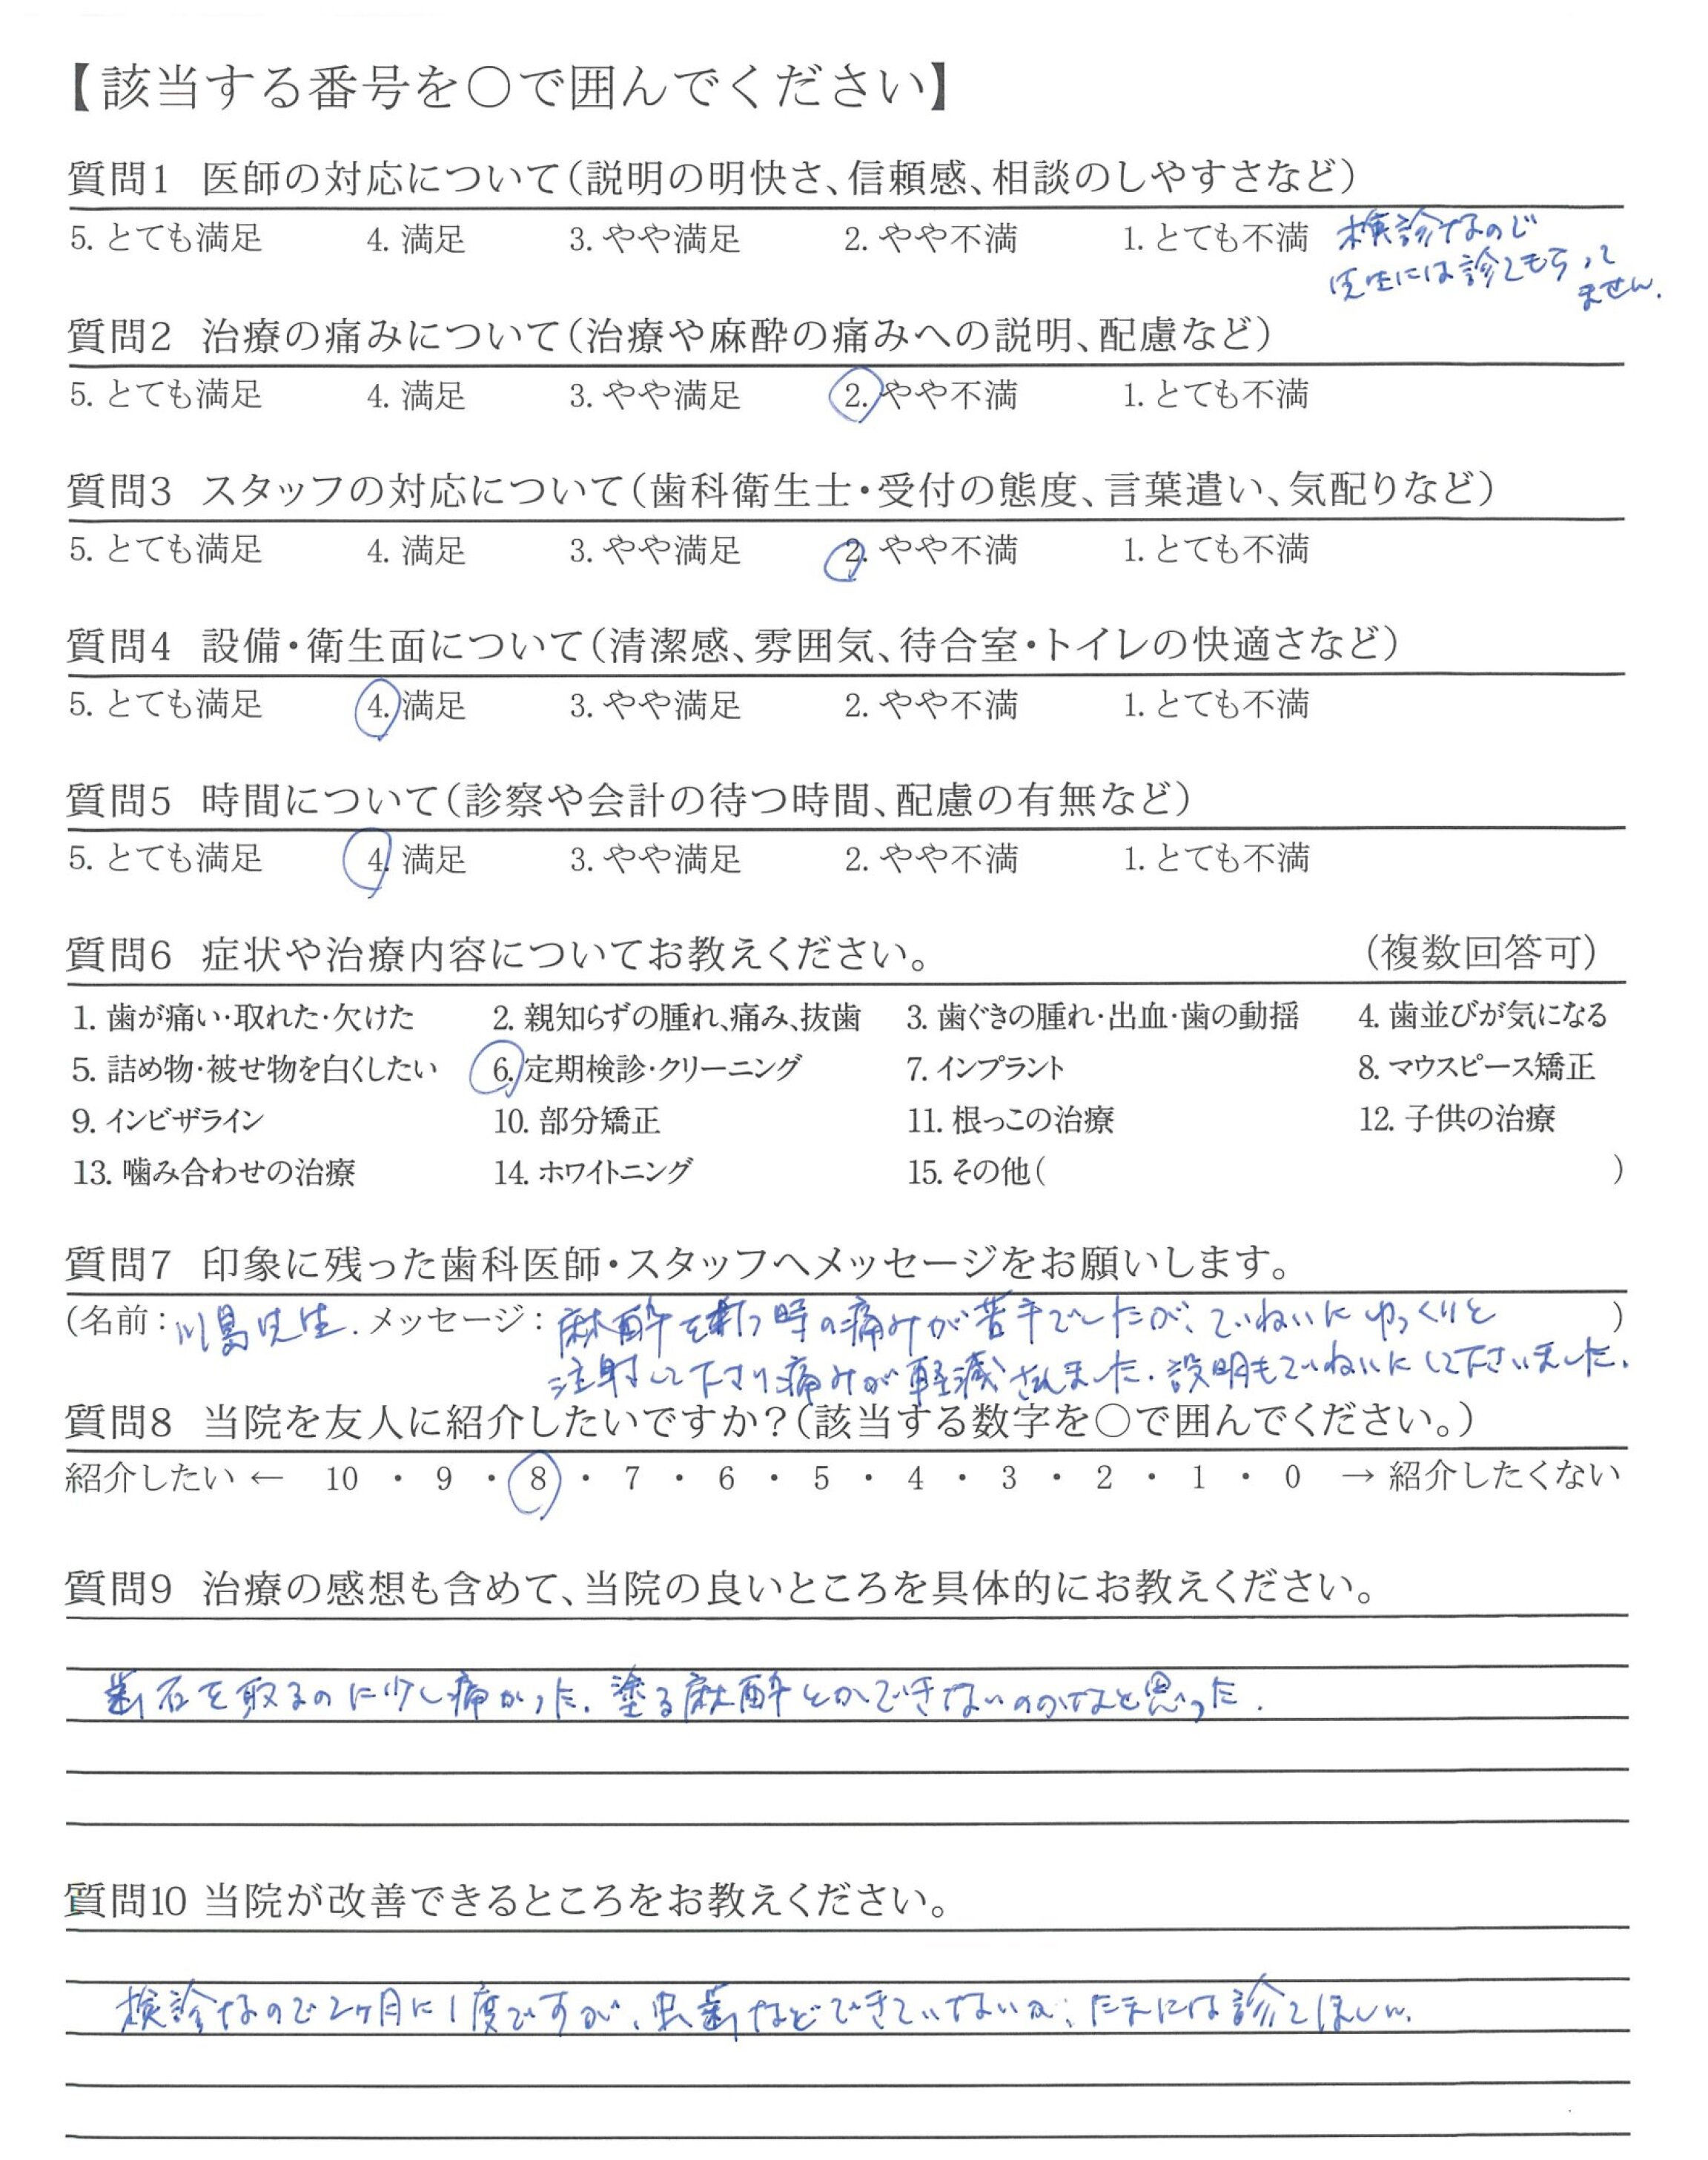 【該当する番号を〇で囲んでください】
質問1 医師の対応について(説明の明快さ、信頼感、相談のしやすさなど)
5. とても満足 4. 満足 3. やや満足 2. やや不満 1. とても不満 検診なので
先生には診てもらって
ません.
質問2 治療の痛みについて(治療や麻酔の痛みへの説明、配慮など)
5. とても満足 4. 満足 3. やや満足 2. やや不満 1. とても不満
質問3 スタッフの対応について(歯科衛生士・受付の態度、言葉遣い、気配りなど)
5. とても満足 4. 満足 3. やや満足 2. やや不満 1. とても不満
質問4 設備・衛生面について(清潔感、雰囲気、待合室・トイレの快適さなど)
5. とても満足 4. 満足 3. やや満足 2. やや不満 1. とても不満
質問5 時間について(診察や会計の待つ時間、配慮の有無など)
5. とても満足 4. 満足 3. やや満足 2. やや不満 1. とても不満
質問6 症状や治療内容についてお教えください。 (複数回答可)
1. 歯が痛い・取れた・欠けた 2. 親知らずの腫れ、痛み、抜歯 3. 歯ぐきの腫れ・出血・歯の動揺 4. 歯並びが気になる
5. 詰め物・被せ物を白くしたい 6. 定期検診・クリーニング 7. インプラント 8. マウスピース矯正
9. インビザライン 10. 部分矯正 11. 根っこの治療 12. 子供の治療
13. 噛み合わせの治療 14. ホワイトニング 15. その他( )
質問7 印象に残った歯科医師・スタッフへメッセージをお願いします。
(名前:川島先生. メッセージ:麻酔を打つ時の痛みが苦手でしたが、ていねいにゆっくりと )
注射して下さり痛みが軽減されました. 説明もていねいにして下さいました.
質問8 当院を友人に紹介したいですか?(該当する数字を〇で囲んでください。)
紹介したい ← 10 ・ 9 ・ 8 ・ 7 ・ 6 ・ 5 ・ 4 ・ 3 ・ 2 ・ 1 ・ 0 → 紹介したくない
質問9 治療の感想も含めて、当院の良いところを具体的にお教えください。
歯石を取るのに少し痛かった. 塗る麻酔とかできないのかなと思った.
質問10 当院が改善できるところをお教えください。
検診なので2ヶ月に1度ですが、虫歯などできていないか、たまには診てほしい.